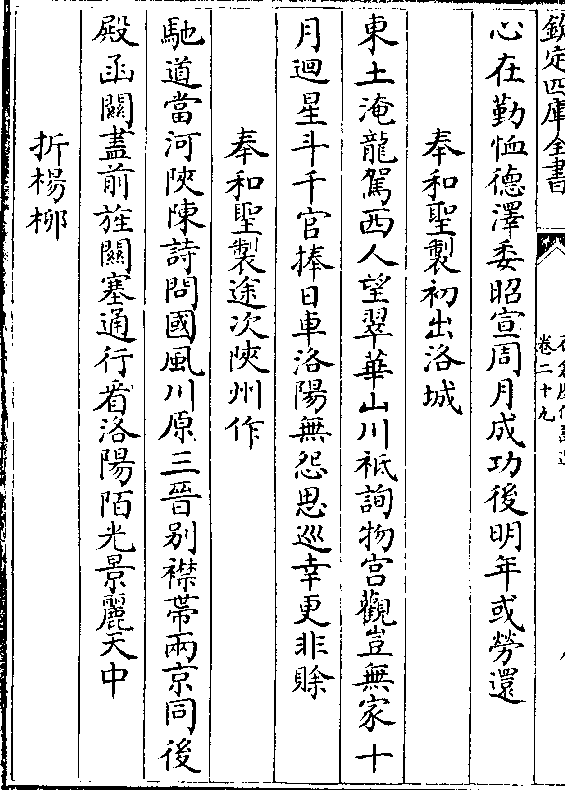 欽定四庫全書
卷二十九
心在勤恤德澤委昭宣周月成功後明年或勞還
奉和聖製初出洛城
東土淹龍駕西人望翠華山川祗詢物宫觀豈無家十
月迴星斗千官捧日車洛陽無怨思巡幸更非賒
奉和聖製途次陜州作
馳道當河陜陳詩問國風川原三晉别襟帶兩京同後
殿函關盡前旌闕塞通行看洛陽陌光景麗天中
折楊柳